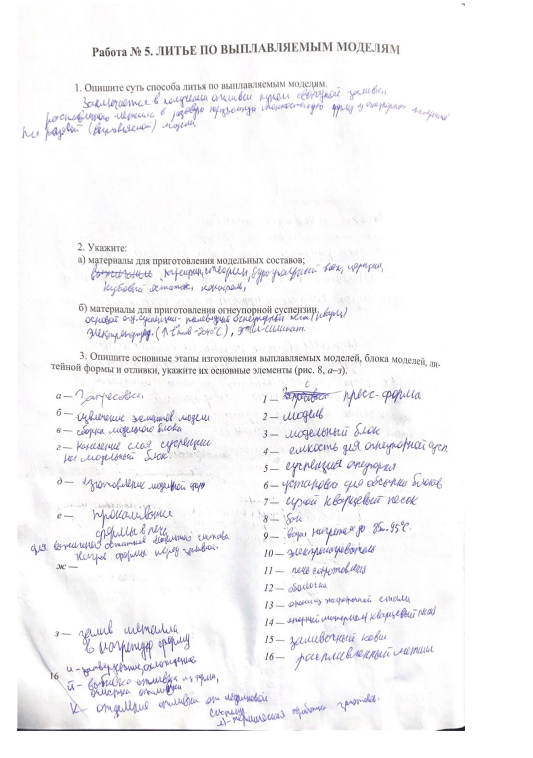 Работа № 5. ЛИТЬЕ ПО ВЫПЛАВЛЯЕМЫМ МОДЕЛЯМ
1. Опишите суть способа литья по выплавляемым моделям.
Заключается в получении отливки путем свободной заливки
расплавленного металла в разовую форму
по разовой (выплавляемой) модели
2. Укажите:
а) материалы для приготовления модельных составов;
парафин, стеарин, буроугольный воск, церезин,
кубовый остаток, канифоль,
б) материалы для приготовления огнеупорной суспензии.
основой огн. суспензии - пылевидная огнеупорная (кварц)
электрокорунд, этил-силикат.
3. Опишите основные этапы изготовления выплавляемых моделей, блока моделей, ли-
тейной формы и отливки, укажите их основные элементы (рис. 8, а–з).
а — Запрессовка
б — извлечение элементов модели
в — сборка модельного блока
г — нанесение слоя суспензии
на модельный блок.
д — изготовление
е — прокаливание
формы в печи
для остатков модельного состава
нагрев формы перед заливкой.
ж —
з — залив металла
в нагретую форму
и - затвердевание, охлаждение
й - выбивка отливки из формы,
очистка отливки
к - отделение отливки от литниковой
системы
л) - термическая обработка
1 — пресс-форма
2 — модель
3 — модельный блок
4 — емкость для огнеупорной сусп
5 — суспензия огнеупорная
6 — установка для обсыпки блоков
7 — сухой кварцевый песок
8 — бак
9 — вода нагретая до 85-95°С.
10 — электронагреватели
11 — печь
12 — оболочка
13 — опока из жаропрочной стали
14 — опорный материал (кварцевый песок)
15 — заливочный ковш
16 — расплавленный металл
16